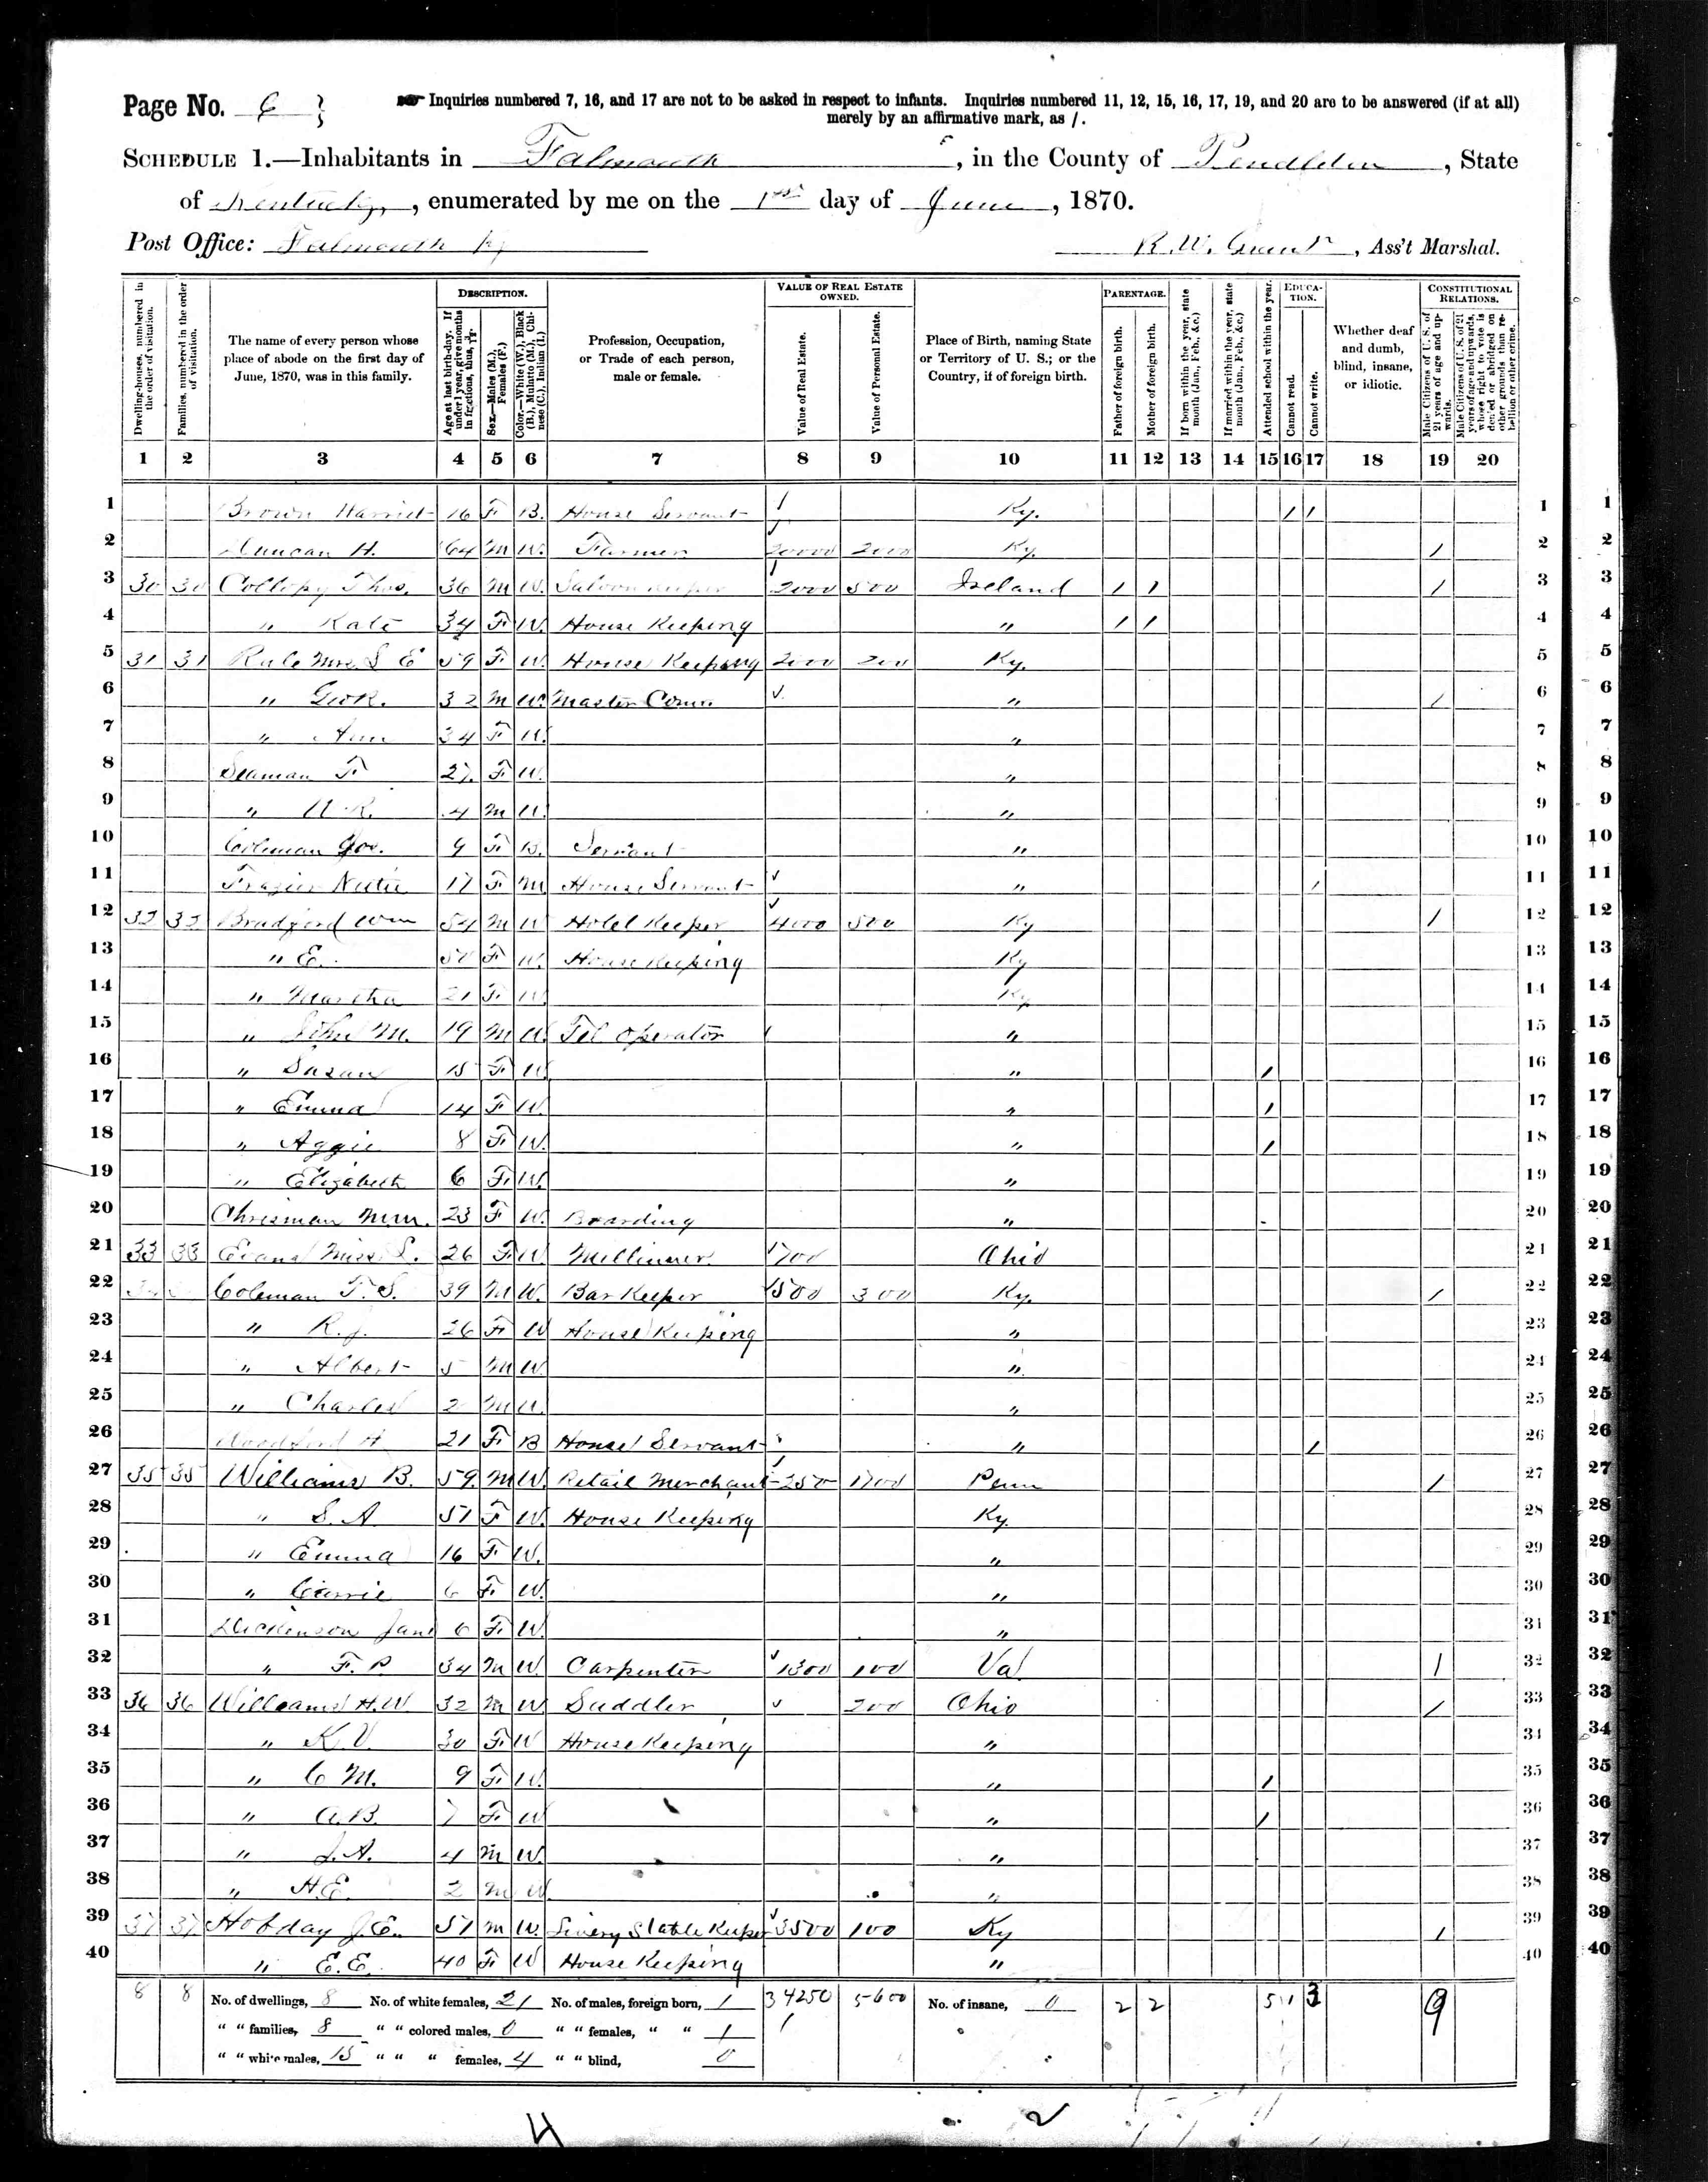 Page No. 6 Inquiries numbered 7, 16, and 17 are not to be asked in respect to infants. Inquiries numbered 11, 12, 15, 16, 17, 19, and 20 are to be answered (if at all)
merely by an affirmative mark, as /.
SCHEDULE 1.—Inhabitants in Falmouth, in the County of Pendleton, State
of Kentucky, enumerated by me on the 1st day of June, 1870.
Post Office: Falmouth Ky R.W. Grant, Ass't Marshal.
DESCRIPTION. VALUE OF REAL ESTATE OWNED. PARENTAGE. EDUCATION. CONSTITUTIONAL RELATIONS.
Dwelling-houses, numbered in the order of visitation.
Families, numbered in the order of visitation.
The name of every person whose place of abode on the first day of June, 1870, was in this family.
Age at last birth-day. If under 1 year, give months in fractions, thus, 3/12.
Sex.—Males (M.), Females (F.)
Color.—White (W.), Black (B.), Mulatto (M.), Chinese (C.), Indian (I.)
Profession, Occupation, or Trade of each person, male or female.
Value of Real Estate.
Value of Personal Estate.
Place of Birth, naming State or Territory of U. S.; or the Country, if of foreign birth.
Father of foreign birth.
Mother of foreign birth.
If born within the year, state month (Jan., Feb., &c.)
If married within the year, state month (Jan., Feb., &c.)
Attended school within the year.
Cannot read.
Cannot write.
Whether deaf and dumb, blind, insane, or idiotic.
Male Citizens of U. S. of 21 years of age and upwards.
Male Citizens of U. S. of 21 years of age and upwards, whose right to vote is denied or abridged on other grounds than rebellion or other crime.
1 2 3 4 5 6 7 8 9 10 11 12 13 14 15 16 17 18 19 20
1 Brown Harriet 16 F B. House Servant Ky. / / 1
2 Duncan H. 64 M W. Farmer 20000 2000 Ky. / 2
3 30 30 Collopy Thos. 36 M W. Saloon Keeper 2000 500 Ireland / / / 3
4 " Kate 34 F W. House Keeping " / / 4
5 31 31 Rule Mrs. S E 59 F W. House Keeping 2000 200 Ky. 5
6 " Geo R. 32 M W. Master Com. " / 6
7 " Ann 34 F W. " 7
8 Seaman F 27 F W. " 8
9 " 4 M W. " 9
10 Coleman 9 F B. Servant " 10
11 Frazier 17 F M House Servant " / 11
12 32 32 Bradford Wm 54 M W Hotel Keeper 4000 500 Ky / 12
13 " E. 50 F W. House Keeping Ky 13
14 " Martha 21 F W. Ky 14
15 " John M. 19 M W. Tel Operator " 15
16 " Susan 15 F W " / 16
17 " Emma 14 F W. " / 17
18 " Aggie 8 F W. " / 18
19 " Elizabeth 6 F W. " 19
20 Chrisman 23 F W. Boarding " 20
21 33 33 Evans Miss L. 26 F W Milliner 700 Ohio 21
22 Coleman F. S. 39 M W. Bar Keeper 1500 300 Ky. / 22
23 " R. J. 26 F W House Keeping " 23
24 " Albert 5 M W. " 24
25 " Charles 2 M W. " 25
26 Woodford H 21 F B House Servant " / 26
27 35 35 Williams B. 59 M W. Retail Merchant 250 1700 Penn / 27
28 " S. A 51 F W. House Keeping Ky. 28
29 " Emma 16 F W. " 29
30 " Carrie 6 F W. " 30
31 Dickenson Jane 6 F W. " 31
32 " F. P 34 M W. Carpenter 1300 100 Va / 32
33 36 36 Williams H. W 32 M W. Saddler 200 Ohio / 33
34 " K. V. 30 F W House Keeping " 34
35 " C M. 9 F W. " / 35
36 " A. B. 7 F W " / 36
37 " J. A. 4 M W. " 37
38 " H. E. 2 M W. " 38
39 37 37 Hobday J. E. 51 M W. Livery Stable Keeper 3500 100 Ky / 39
40 " E. E. 40 F W House Keeping " 40
8 8 No. of dwellings, 8 No. of white females, 21 No. of males, foreign born, 1 34250 5600 No. of insane, 0 2 2 5 1 3 9
" " families, 8 " " colored males, 0 " " females, " " 1
" " white males, 15 " " " females, 4 " " blind, 0
4 2